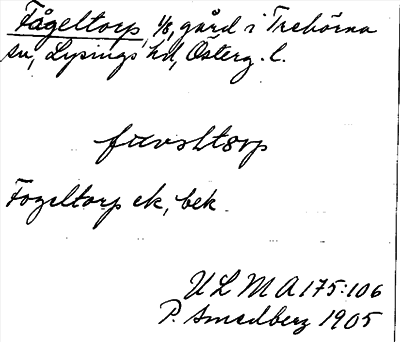 Fågeltorp, 1/8, gård i Trehörna
sn, Lysings hd, Österg. l.
Fogeltorp ek, bek.
U L M A 175:106
P. Smedberg 1905